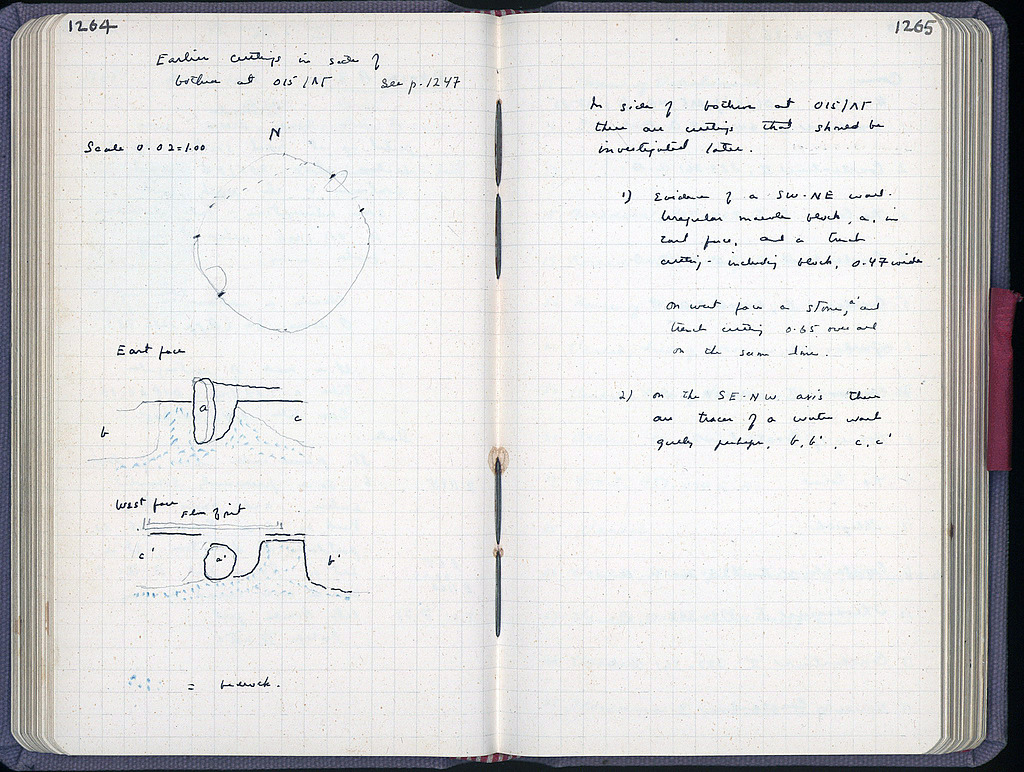 1264
Earlier cuttings in side of
bothros at 015/ΛΓ See p. 1247
N
Scale 0.02=1.00
East face
a
b
c
West face
Floor of pit
c'
a'
b'
= bedrock.
1265
In side of bothros at 015/ΛΓ
there are cuttings that should be
investigated later.
1) Evidence of a SW-NE wall.
Irregular massive block, a, in
East face, and a trench
cutting - including block, 0.47 wide
On west face a stone, a' and
trench cutting 0.65 over all
on the same line.
2) on the SE-NW axis there
are traces of a water wash
gully perhaps, b, b', c, c'